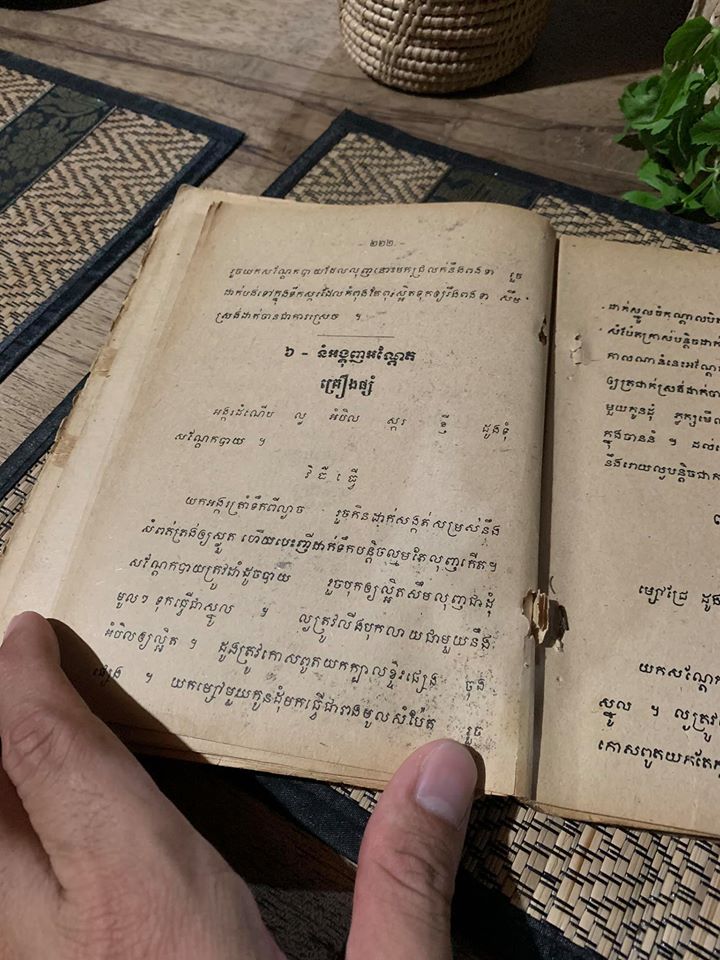 - ២២២ -
រួចយកសណ្ដែកបាយដែលលុញនោះមកជ្រលក់នឹងពងទា រួច
ដាក់បង់ទៅក្នុងទឹកស្ករដែលកំពុងតែពុះស្អិតទុកឲ្យរឹងពងទា សឹម
ស្រង់ដាក់បានជាការស្រេច ។
៦ - នំអង្គុញអណ្ដែត
គ្រឿងផ្សំ
អង្ករដំណើប ល្ង អំបិល ស្ករ ខ្ទិ ដូងទុំ
សណ្ដែកបាយ ។
វិធីធ្វើ
យកអង្ករត្រាំទឹកពីល្ងាច រួចកិនដាក់សង្កត់សម្រស់នឹង
សំពត់ត្រង់ឲ្យស្ងួត ហើយបេះញីដាក់ទឹកបន្តិចល្មមតែលុញកើត។
សណ្ដែកបាយត្រូវដាំដូចបាយ រួចបុកឲ្យល្អិតសឹមលុញជាដុំ
មូលៗ ទុកធ្វើជាស្នូល ។ ល្ងត្រូវលីងបុកលាយជាមួយនឹង
អំបិលឲ្យល្អិត ។ ដូងត្រូវកោសពូតយកក្បាលខ្ទិះផ្សេង ចុង
ផ្សេង ។ យកម្សៅមួយកូនដុំមកធ្វើជារាងមូលសំប៉ែត រួច
ដាក់ស្នូលចំកណ្ដាលបិ
សំប៉ែតក្រាស់បន្តិចដាក់
កាលណានំនេះអណ្ដែ
ឲ្យត្រជាក់ស្រង់ដាក់ចា
មួយកូនដុំ
ក្នុងចាននំ ។ ដល់ពេ
នឹងរោយល្ងបន្តិចជាក
ម្សៅជ្រៃ ដូង
យកសណ្ដែក
ស្នូល ។ ល្ងត្រូវ
កោសពូតយកតែក